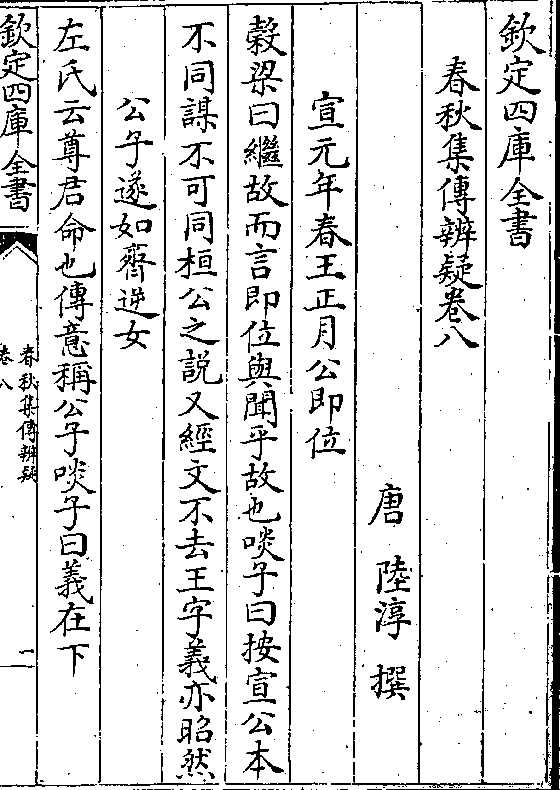 欽定四庫全書
春秋集傳辨疑卷八
唐 陸淳 撰
宣元年春王正月公即位
穀梁曰繼故而言即位與聞乎故也啖子曰按宣公本
不同謀不可同桓公之説又經文不去王字義亦昭然
公子遂如齊逆女
左氏云尊君命也傳意稱公子啖子曰義在下
欽定四庫全書
春秋集傳辨疑
卷八
一